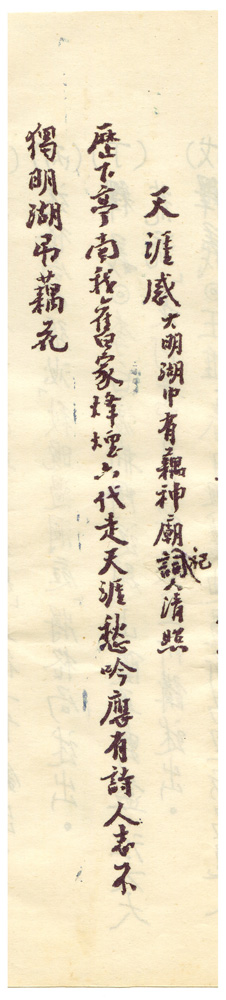 天涯感 大明湖中有藕神廟祀詞人清照
歷下亭南我舊家烽煙六代走天涯愁吟應有詩人志不
獨明湖吊藕花